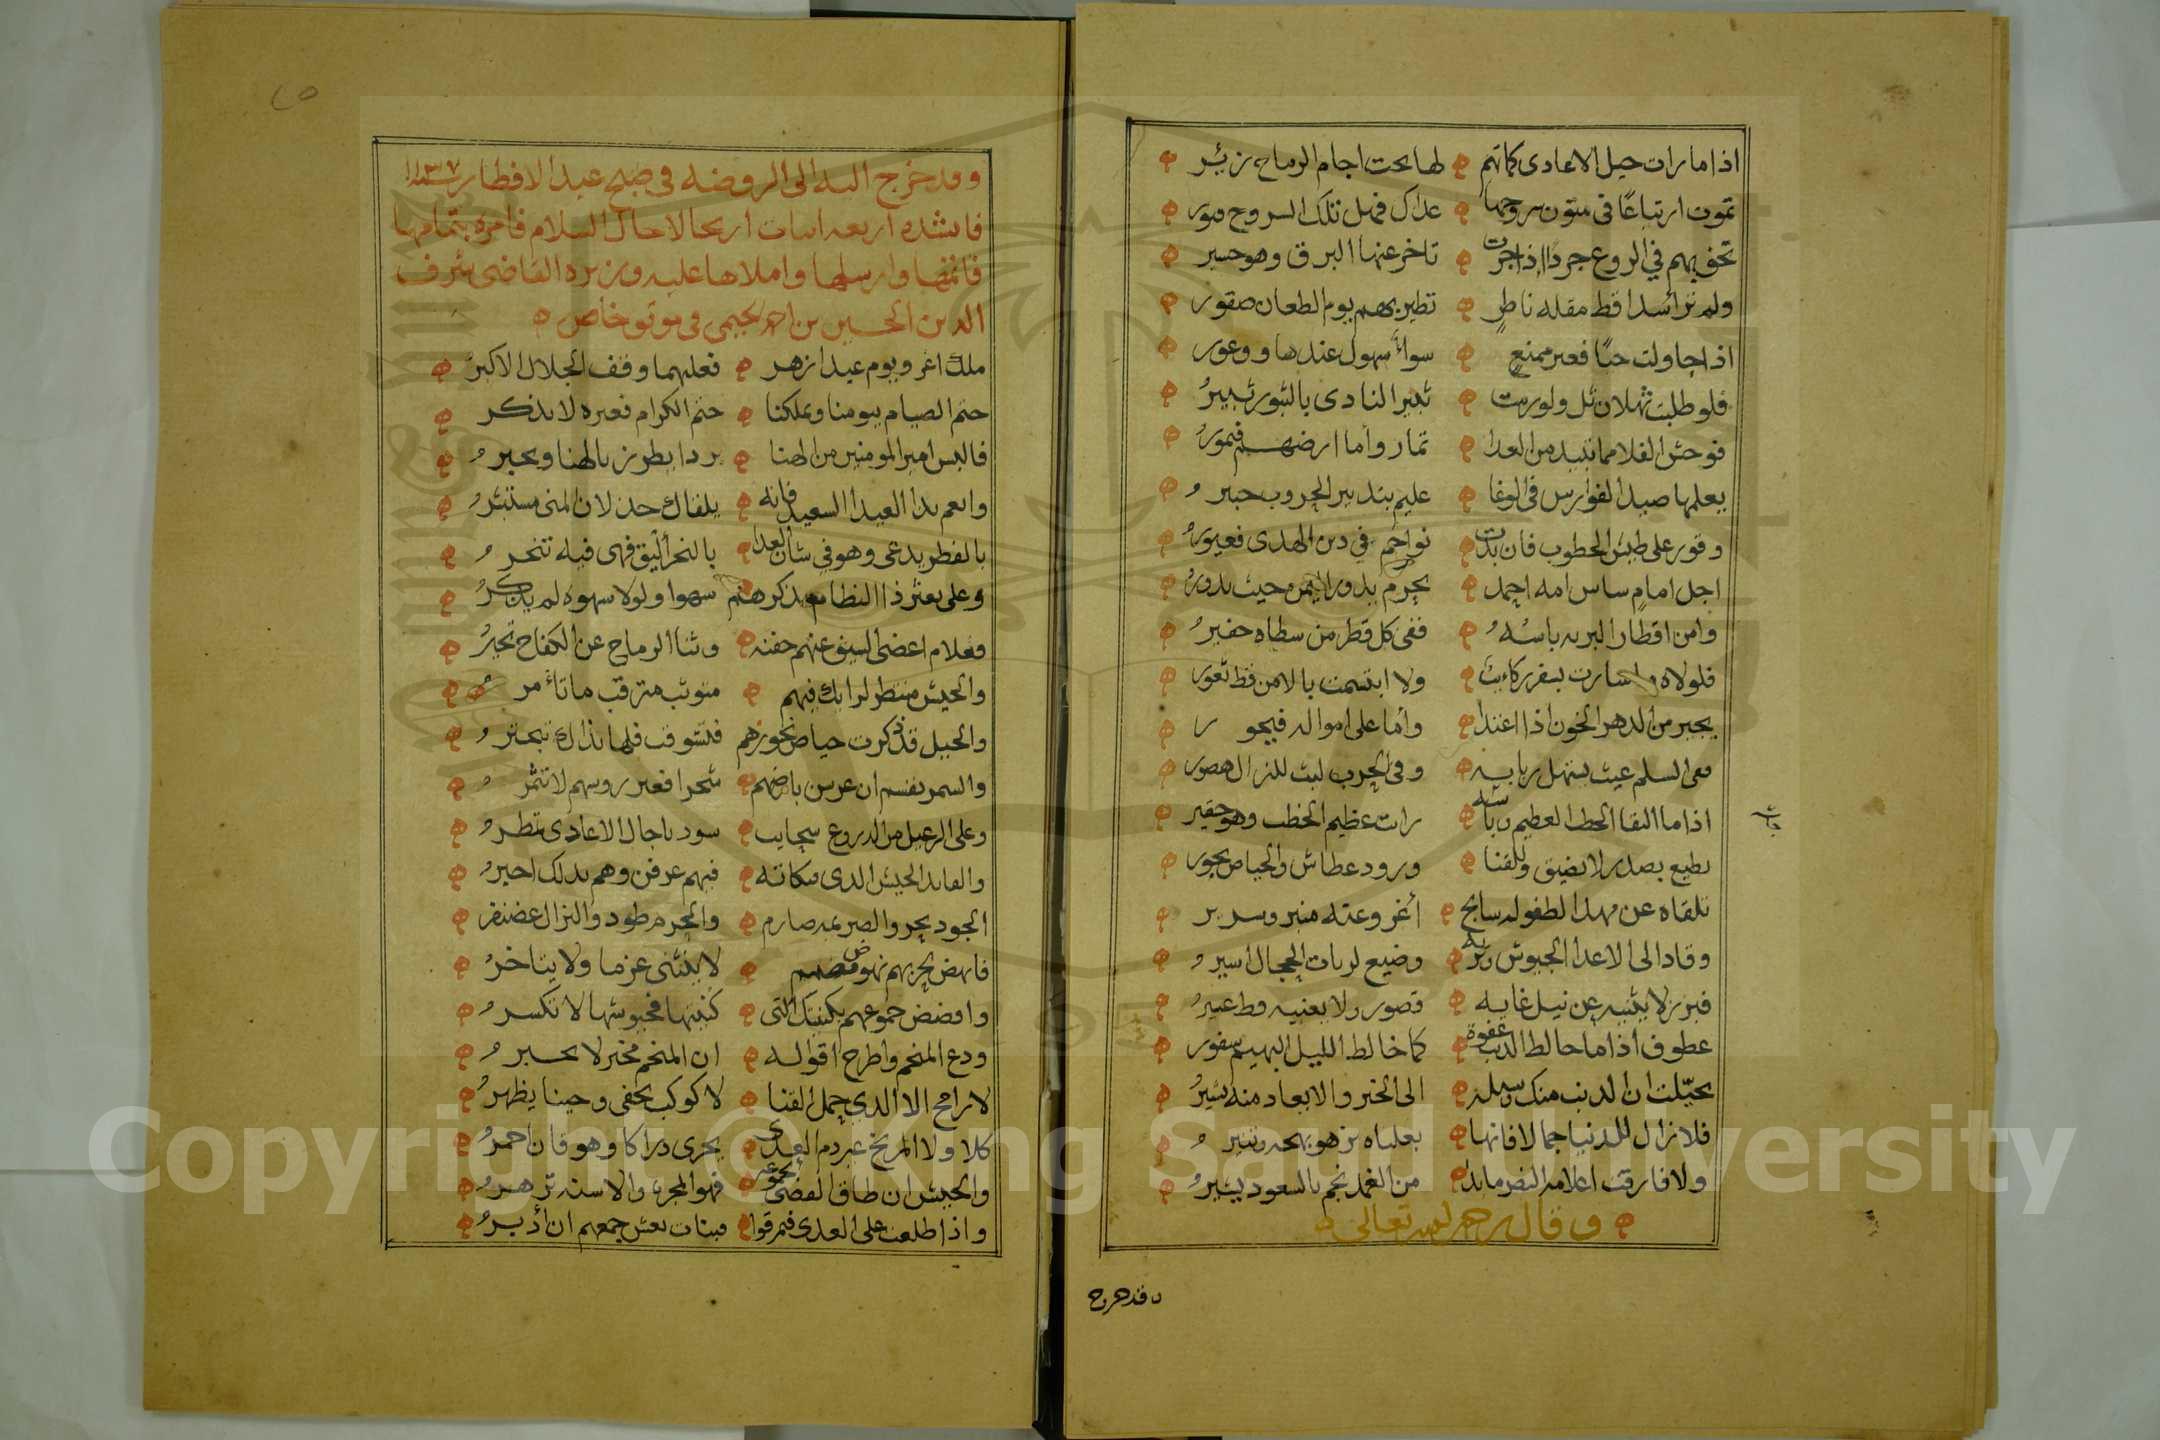 اذا ما رات خيل الاعادي كماتهم لها تحت اجام الرماح زئير
تموت ارتياعًا في متون سروجها عداك فهل تلك السروج قبور
تخف بهم في الروع جردًا اذا جرت تاخر عنها البرق وهو حسير
ولم تر اسدا قط مقلة ناظرٍ تطير بهم يوم الطعان صقور
اذا حاولت حيًا فغير ممنعٍ سواءٌ سهول عندها ووعور
فلو طلبت ثهلان ثل ولو رمت ثبير النادى بالثبور ثبيرُ
فوحش الفلا مما تبيد من العدا تمار وأما ارضهم فتمورُ
يعلمها صيد الفوارس في الوغا عليم بتدبير الحروب خبير
وقور على طيش الخطوب فان بدت نواجم في دين الهدى فغيورُ
اجل امامٍ ساس امة احمد يحرم يدور اليمن حيث يدورُ
وامن اقطار البرية باسُهُ ففي كل قطر من سطاه خفيرُ
فلولاه ما سارت بسفر ركائب ولا ابتسمت بالامن قط ثغور
يجير من الدهر الخون اذا اعتدا وأما على امواله فيجور
ففي السلم غيث يستهل ربابه وفي الحرب ليث للنزال هصور
اذا ما التقا الخطب العظيم ببأسه رات عظيم الخطب وهو حقير
يطيع بصدر لا يضيق وللقنا ورود عطاش والحياض نحور
تلقاه عن مهد الطفوله سابح أغر وعته منبر وسرير
وقاد الى الاعدا الجيوش وتربه وضيع لربات الحجال اسير
فبرز لا يثنيه عن نيل غايه قصور ولا يعييه قط عسيرُ
عطوف اذا ما خالط الذنب عفوه كما خالط الليل البهيم سفور
تخيّلت ان الذنب منك وسيلة الى الخير والابعاد منه يشيرُ
فلا زال للدنيا جمالا فانها بعلياه تزهو بهجة وتنير
ولا فارقت اعلامه النصر ما بدا من الغمد نجم بالسعود يشيرُ
وقال رحمه الله تعالى
وقد خرج
٢٥
وقد خرج اليه الى الروضه في صبح عيد الافطار سنة ١١٣٧
فانشده اربعه ابيات ارتجالا حال السلام فامره بتمامها
فاتمها وارسلها واملاها عليه وزيره القاضي شرف
الدين الحسين بن احمد الحيمي في موقف خاص
ملك اغر ويوم عيد ازهر فعليهما وقف الجلال الاكبر
ختم الصيام بيومنا وبملكنا ختم الكرام فغيره لا يذكر
فالبس امير المومنين من الهنا بردا يطرز بالهنا ويحبرُ
وانعم بذا العيد السعيد فانه يلقاك جذلان المنى مستبشرُ
بالفطر يدعى وهو في شأن العدا بالنحر أليق فهي فيه تنحر
وعلى تعثر ذا النظام بذكرهم سهوا ولولا سهوه لم يذكرُ
فعلام اغضى السيف عنهم جفنه وثنا الرماح عن الكفاح تحيرُ
والجيش منتظر لرايك فيهم متوثب مترقب ما تأمر
والخيل قد ذكرت حياض نحورهم فتشوقت فلها بذاك تبختر
والسمر تقسم ان غرسن بارضهم شجرا فغير روسهم لا تثمر
وعلى الرعيل من الدروع سحايب سود باجال الاعادى تمطرُ
والقائد الجيش الذي فتكاته فيهم عرفن وهم بذلك اخبرُ
الجود بحر والصريمه صارم والحزم طود والنزال غضنفر
فانهض بحربهم نهوض مصمم لا ينثني عزما ولا يتاخرُ
وافضض جموعهم بكتبك التي كتبتها فجيوشها لا تكسرُ
ودع المنجم واطرح اقواله ان المنجم مخبر لا يخبرُ
لا رامح الا الذي حمل القنا لا كوكب يخفى وحينا يظهرُ
كلا ولا المريخ غير دم العدى يجرى دراكا وهو قان احمرُ
والجيش ان طاق الفضى بجموعه فهو المجرة والاسنه تزهرُ
واذا طلعت على العدى فتمزقوا فبنات نعش جمعهم ان أدبرُ